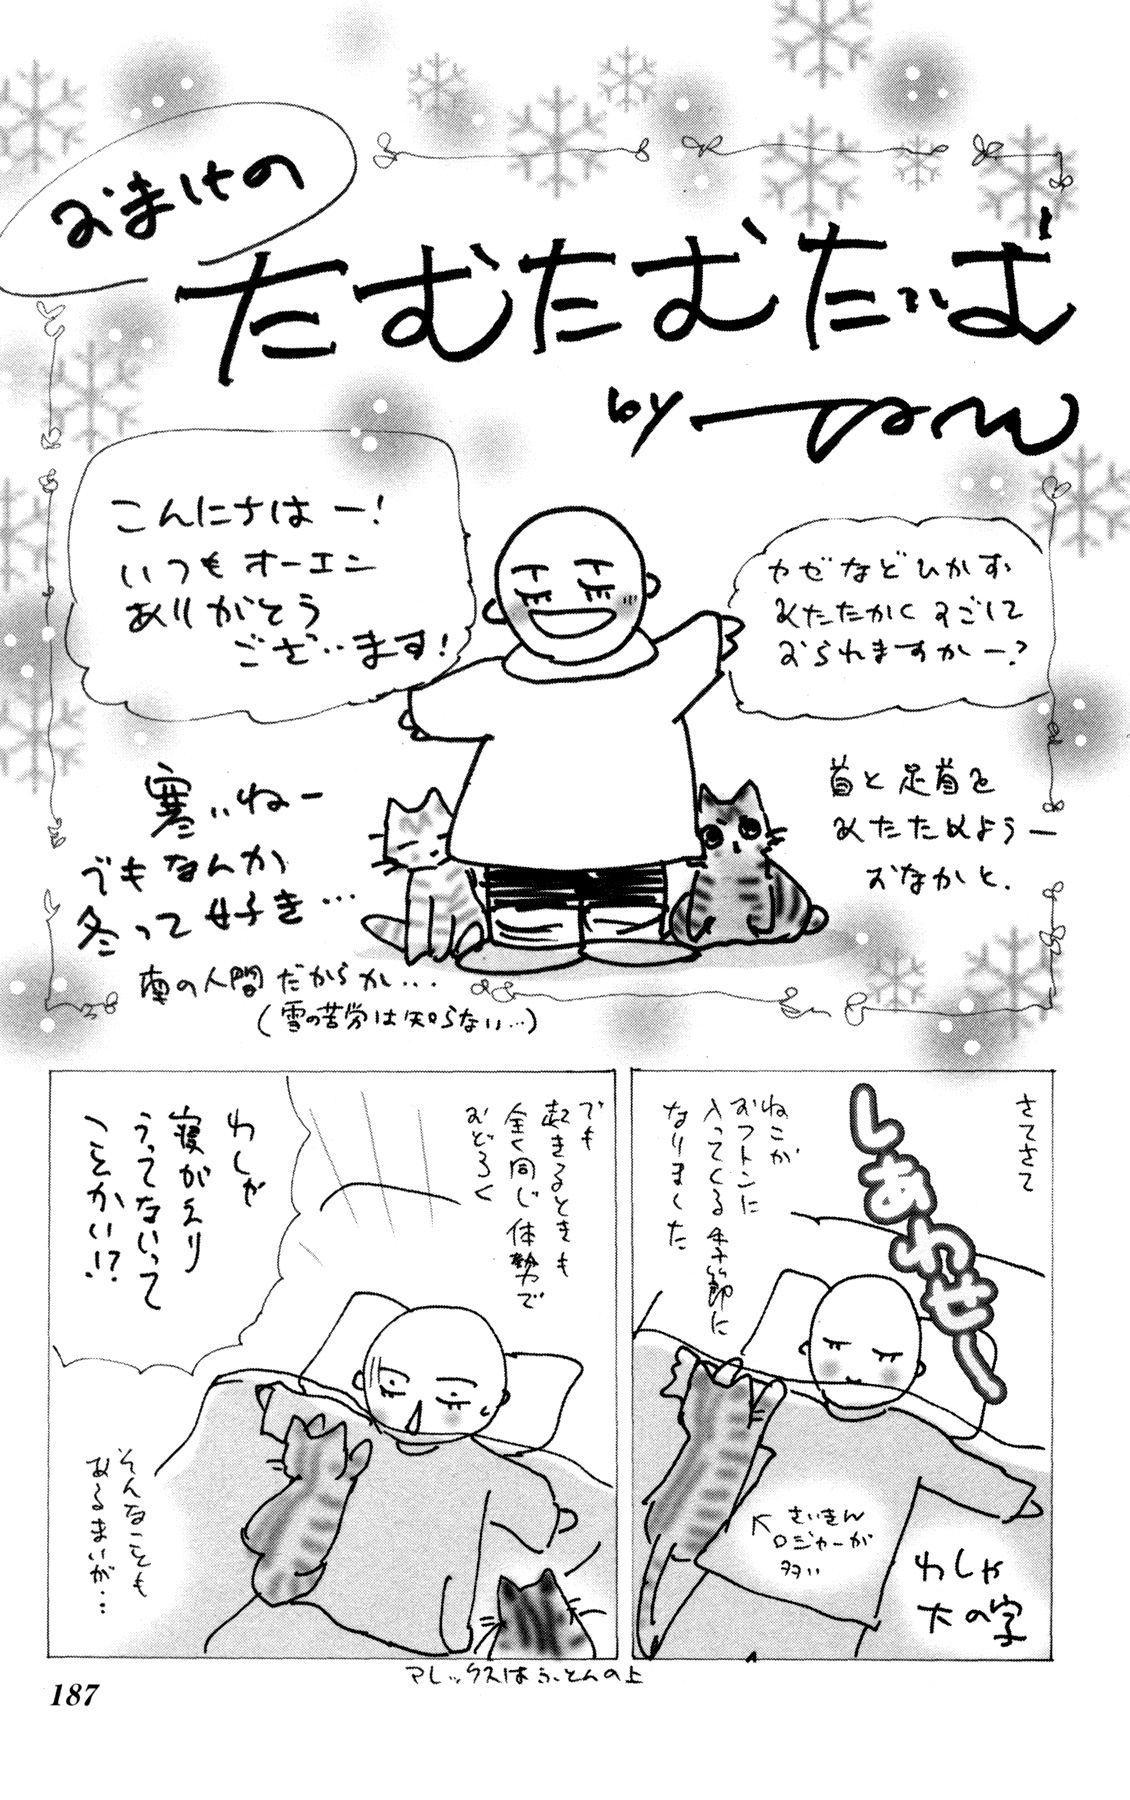 おまけの
たむたむたいむ
by
こんにちはー!
いつもオーエン
ありがとう
ございます!
カゼなどひかず
あたたかくすごして
おられますかー?
寒いねー
でもなんか
冬って好き…
南の人間だからか…
(雪の苦労は知らない…)
首と足首を
あたためようー
おなかと.
さてさて
しあわせー
ねこが
おフトンに
入ってくる季節に
なりました
さいきん
ロジャーが
多い
わしゃ
大の字
でも
起きるときも
全く同じ体勢で
おどろく
わしゃ
寝がえり
うってないって
ことかい!?
そんなことも
あるまいが…
アレックスはふとんの上
187